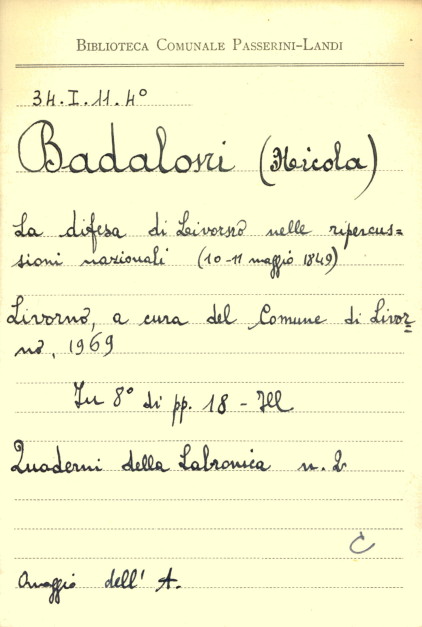 BIBLIOTECA COMUNALE PASSERINI-LANDI
34.I.11.4°
Badaloni (Nicola)
La difesa di Livorno nelle ripercus=
sioni nazionali (10-11 maggio 1849)
Livorno, a cura del Comune di Livor=
no, 1969
In 8° di pp. 18 - Ill
Quaderni della Labronica n. 2
C
Omaggio dell' A.